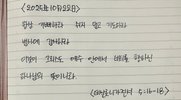 <2025년 10월 22일>
항상 기뻐하라 쉬지 말고 기도하라
범사에 감사하라
이것이 그리스도 예수 안에서 너희를 향하신
하나님의 뜻이니라
(데살로니가전서 5:16-18)